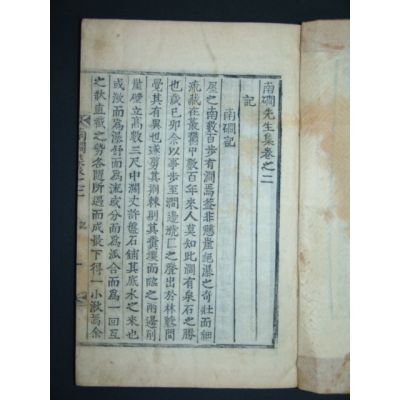 南磵先生集卷之二
記
南磵記
屋之南數百步有澗焉蓋非懸崖絕瀑之奇壯而細
流藏在叢薈中數百年來人莫知此澗有泉石之勝
也歲己卯余以事步至澗邊之聲出於林壑間
覺其有異也遂剪其荊棘剔其糞壤而臨之兩邊削
崖壁立高數三尺中許盤石鋪其底水之來也
或激而爲瀑舒而爲流或分而爲派合而爲一回互
之狀直截之勢各隨所遇而成最下得一小湫焉余
南磵集卷之二 記 一